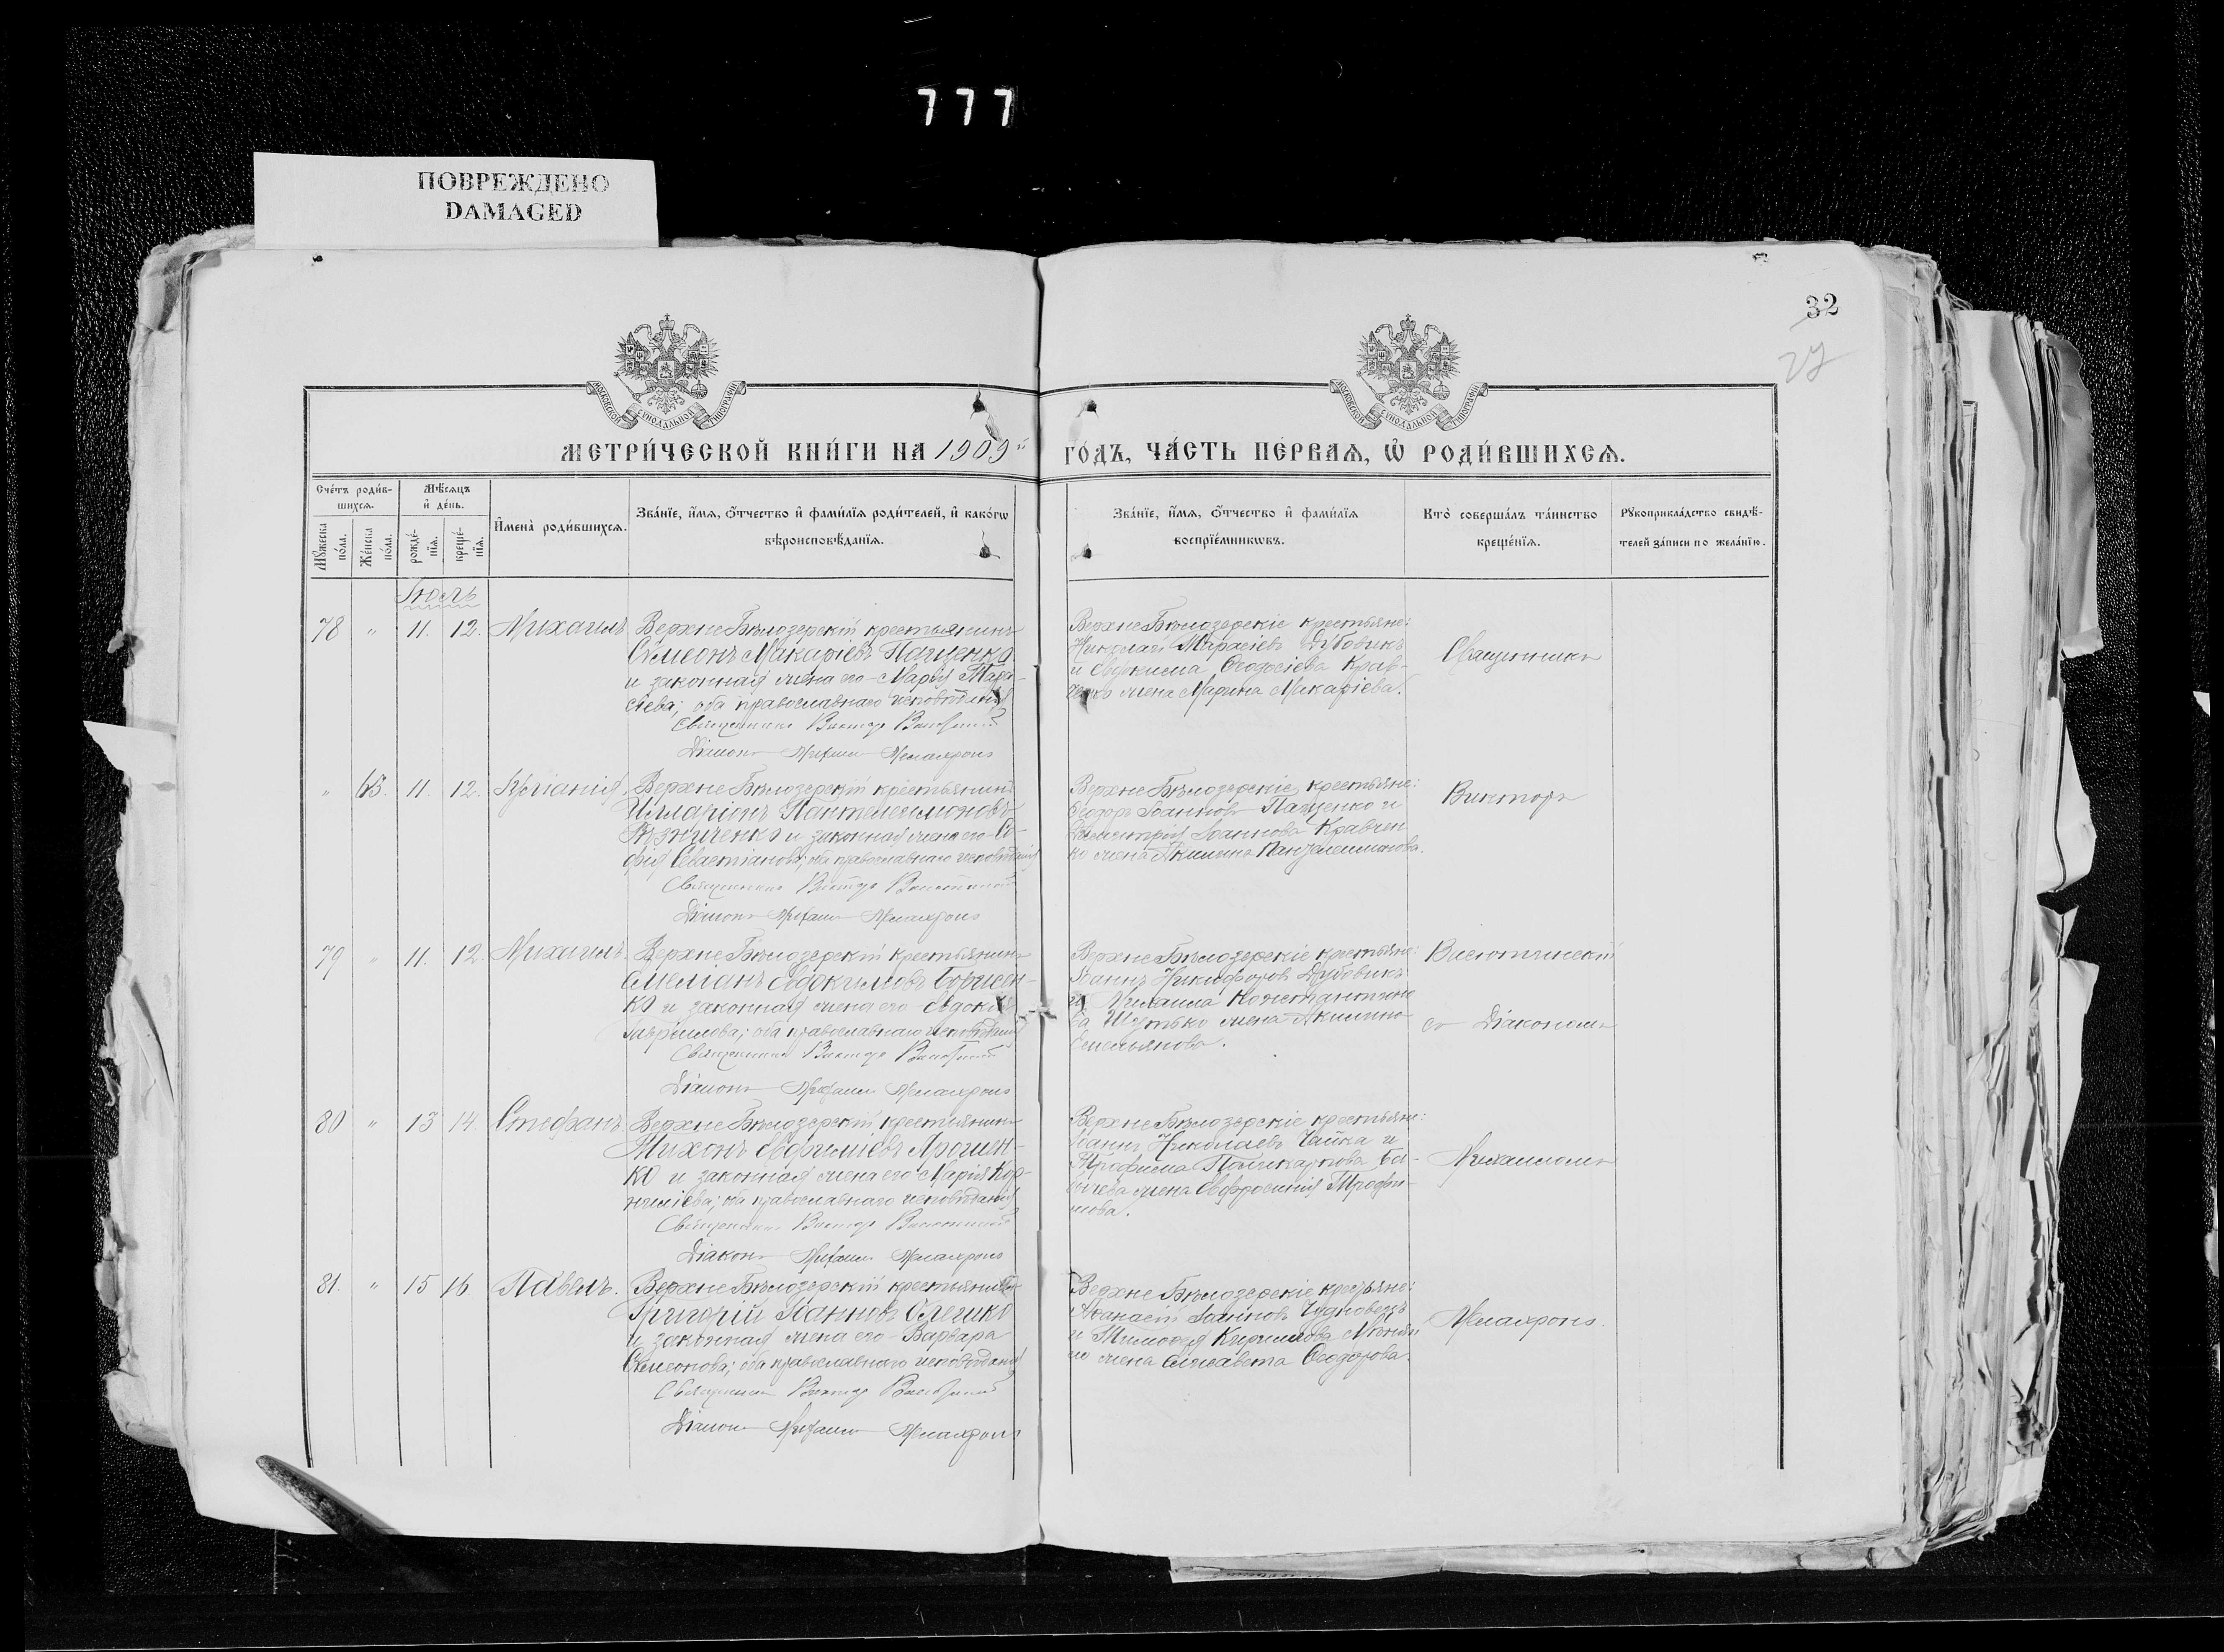 777
ПОВРЕЖДЕНО
DAMAGED
32
27
МОСКОВСКОЙ СѴНОДАЛЬНОЙ ТИПОГРАФІИ
МОСКОВСКОЙ СѴНОДАЛЬНОЙ ТИПОГРАФІИ
МЕТРИ́ЧЕСКОЙ КНИ́ГИ НА 1909й ГОДЪ, ЧА́СТЬ ПЕ́РВАѦ, Ѡ҆ РОДИ́ВШИХСѦ.
Сче́тъ роди́в-
шихсѧ.
Мꙋ́жеска по́ла.
Же́нска по́ла.
Мѣ́сѧцъ
и҆ де́нь.
рожде́-
нїѧ.
креще́-
нїѧ.
И҆мена̀ роди́вшихсѧ.
Зва́нїе, и҆́мѧ, ѻ҆́тчество и҆ фами́лїѧ роди́телей, и҆ како́гѡ
вѣроисповѣ́данїѧ.
Зва́нїе, и҆́мѧ, ѻ҆́тчество и҆ фами́лїѧ
воспрїе́мникѡвъ.
Кто̀ соверша́лъ та́инство
креще́нїѧ.
Рꙋкоприкла́дство свидѣ́-
телей за́писи по жела́нїю.
Іюль
78 " 11. 12. Михаилъ
Верхне Бѣлозерскій крестьянинъ
Симеонъ Макаріевъ Пащенко
и законная жена его Марія Тара-
сіева; оба православнаго исповѣданія
Священникъ Викторъ
Діаконъ Михаилъ
Верхне Бѣлозерскіе крестьяне:
Николай Тарасіевъ Дубовикъ
и Евдокима Ѳеодосіева Крав-
жена Марина Макаріева.
Священникъ
" 63. 11. 12. Іуліанія
Верхне Бѣлозерскій крестьянинъ
Илларіонъ Пантелеимоновъ
и законная жена его Со-
фія Севастіанова; оба православнаго исповѣданія
Священникъ Викторъ
Діаконъ Михаилъ
Верхне Бѣлозерскіе крестьяне:
Ѳеодоръ Іоанновъ Пащенко и
Димитрія Іоаннова Кравчен
ко жена Акилина Пантелеимонова.
Викторъ
79 " 11. 12. Михаилъ
Верхне Бѣлозерскій крестьянинъ
Емеліанъ Евдокимовъ Борисен-
ко и законная жена его Евдокія
Гавриилова; оба православнаго исповѣданія
Священникъ Викторъ
Діаконъ Михаилъ
Верхне Бѣлозерскіе крестьяне:
Іоаннъ Никифоровъ Дубовикъ
и Михаила Константино
ва Шутько жена Акилина
Емельянова.
съ Діакономъ
80 " 13 14. Стефанъ
Верхне Бѣлозерскій крестьянинъ
Тихонъ Евфиміевъ
ко и законная жена его Марія Кор-
ниліева; оба православнаго исповѣданія
Священникъ Викторъ
Діаконъ Михаилъ
Верхне Бѣлозерскіе крестьяне:
Іоаннъ Николаевъ Чайка и
Трофима Поликарпова
жена Евфросинія Трофи-
мова.
Михаиломъ
81. " 15 16 Павелъ.
Верхне Бѣлозерскій крестьянинъ
Григорій Іоанновъ
и законная жена его Варвара
Симеонова; оба православнаго исповѣданія
Священникъ Викторъ
Діаконъ Михаилъ
Верхне Бѣлозерскіе крестьяне:
Аѳанасій Іоанновъ Чудновецъ
и Тимоѳея Кириллова
жена Елисавета Ѳеодорова.